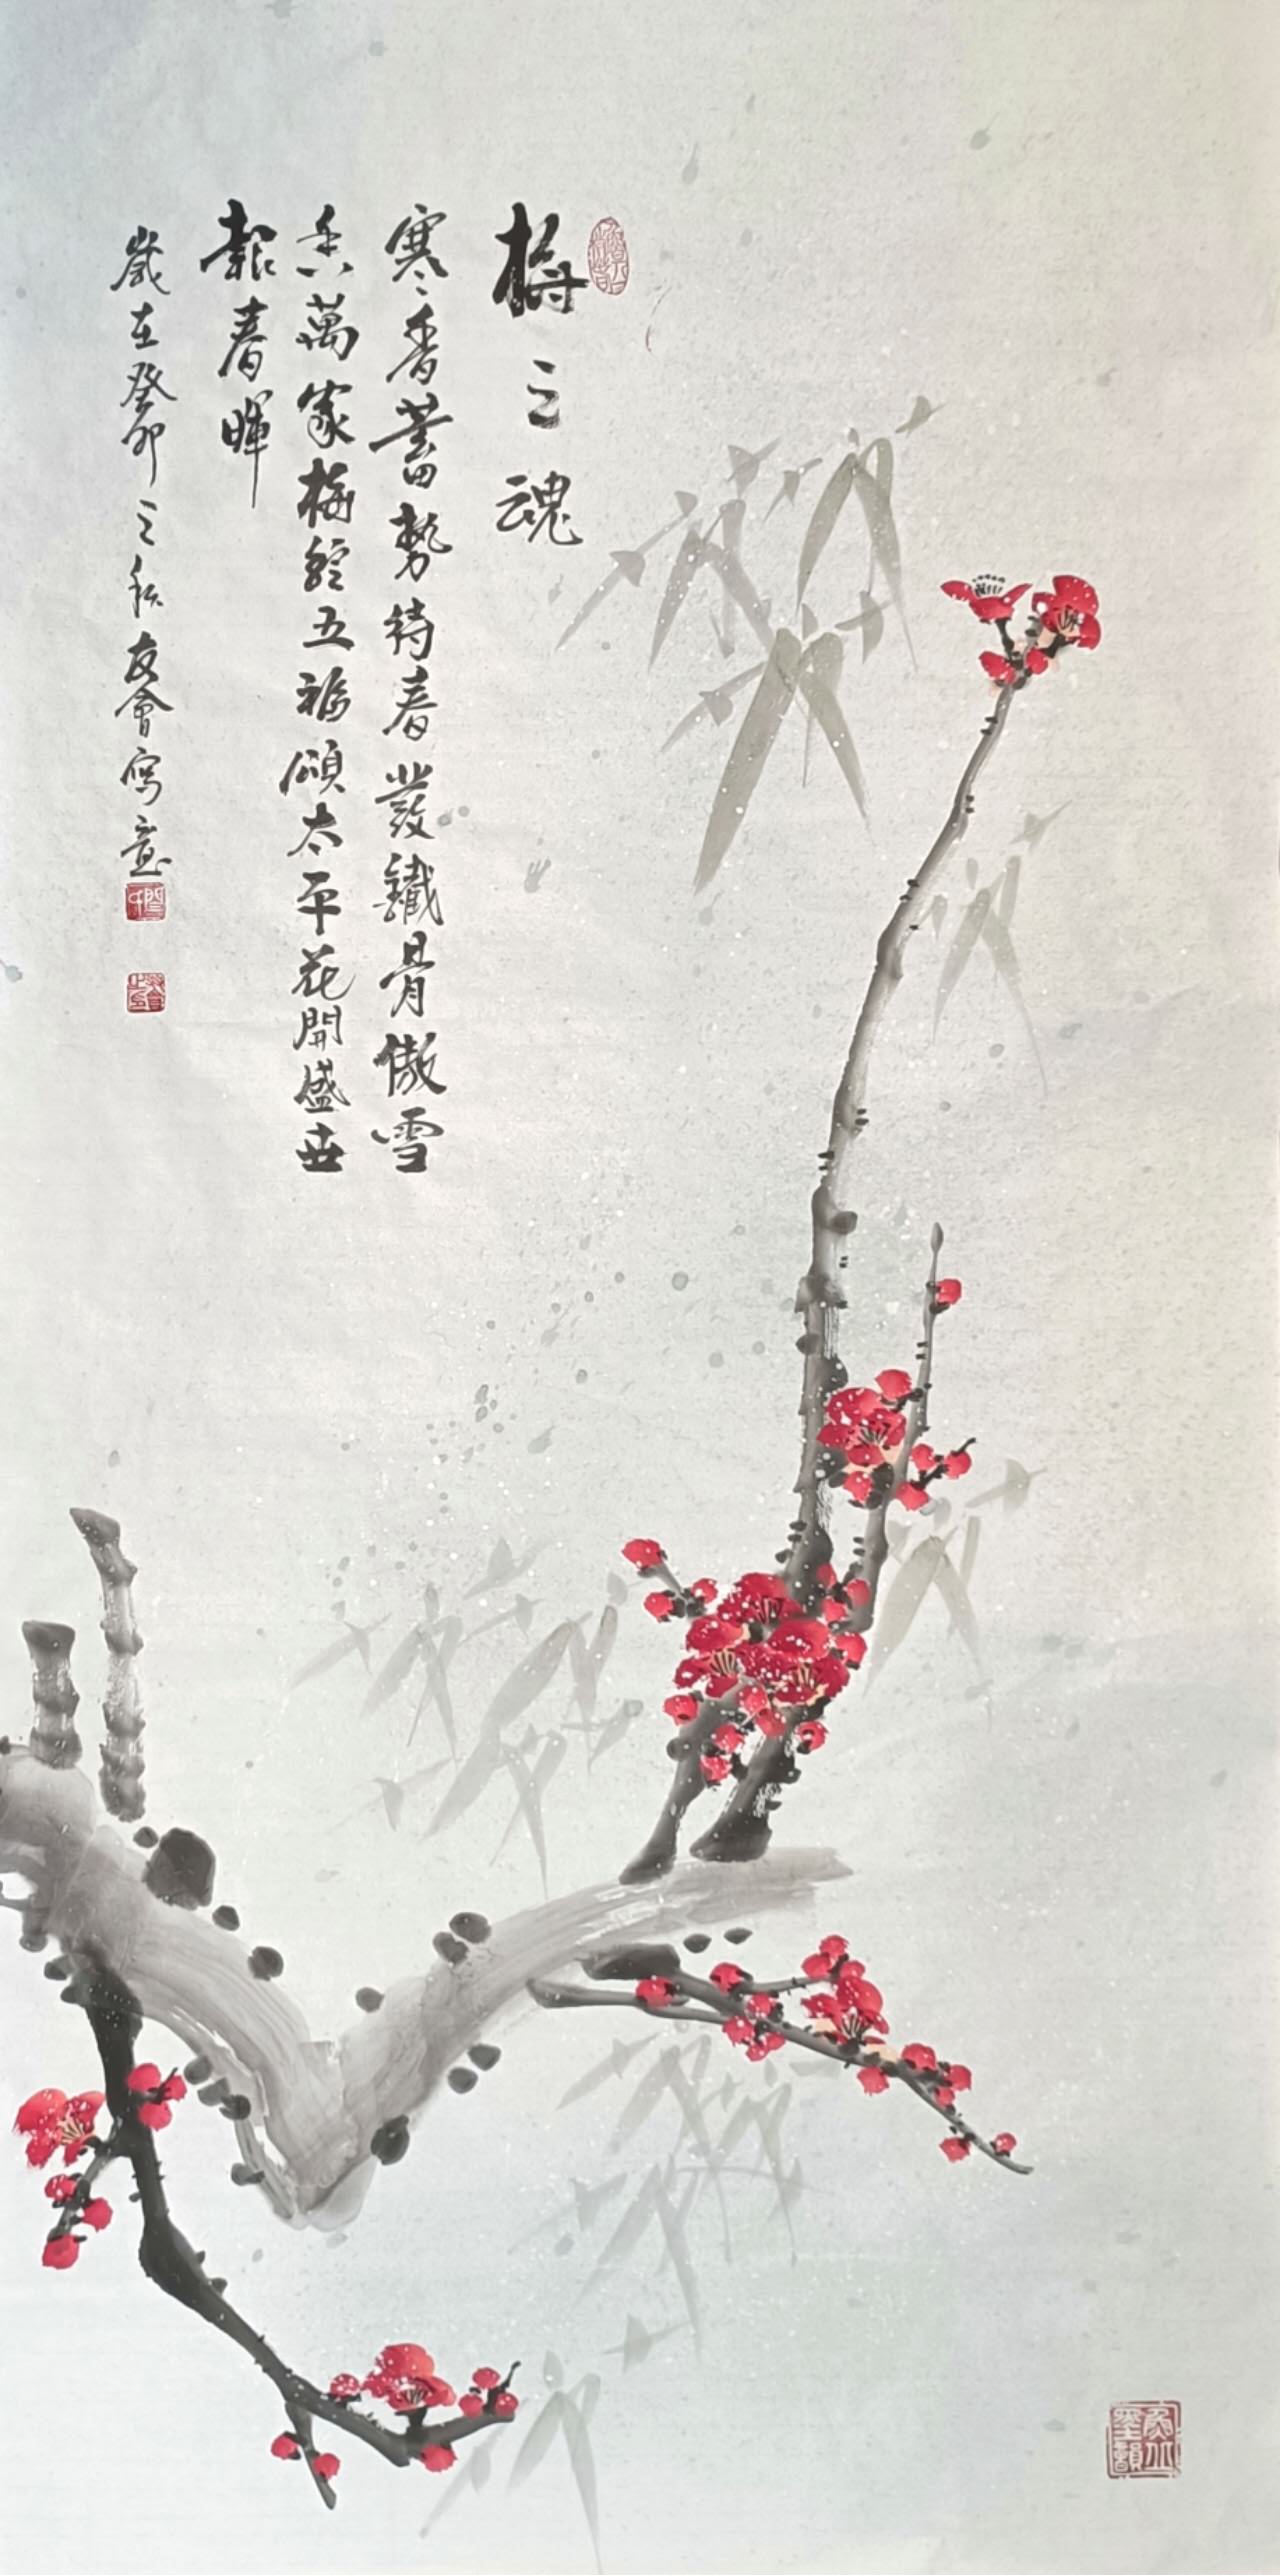 梅之魂
寒香蓄勢待春發鐵骨傲雪
香萬家梅綻五福頌太平花開盛世
報春暉
歲在癸卯之秋友會寫意